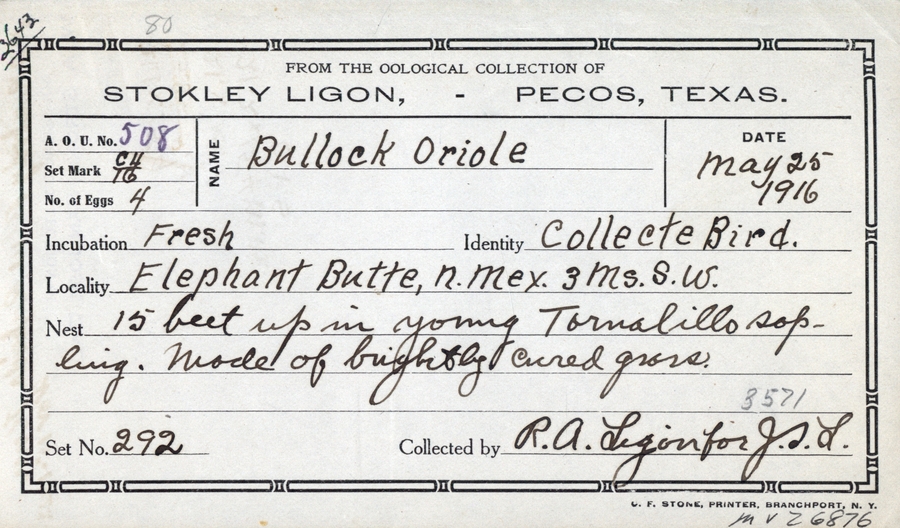 3643
80
FROM THE OOLOGICAL COLLECTION OF
STOKLEY LIGON, - PECOS, TEXAS.
A. O. U. No. 508
Set Mark C4/16
No. of Eggs 4
NAME Bullock Oriole
DATE
May 25
1916
Incubation Fresh Identity Collecte Bird.
Locality Elephant Butte, N. Mex. 3 Ms. S. W.
Nest 15 beet up in young Tornalillo sap-
ling. Made of brightly cured grass.
3571
Set No. 292 Collected by R. A. Ligon for J. S. L.
C. F. STONE, PRINTER, BRANCHPORT, N. Y.
MVZ 6876